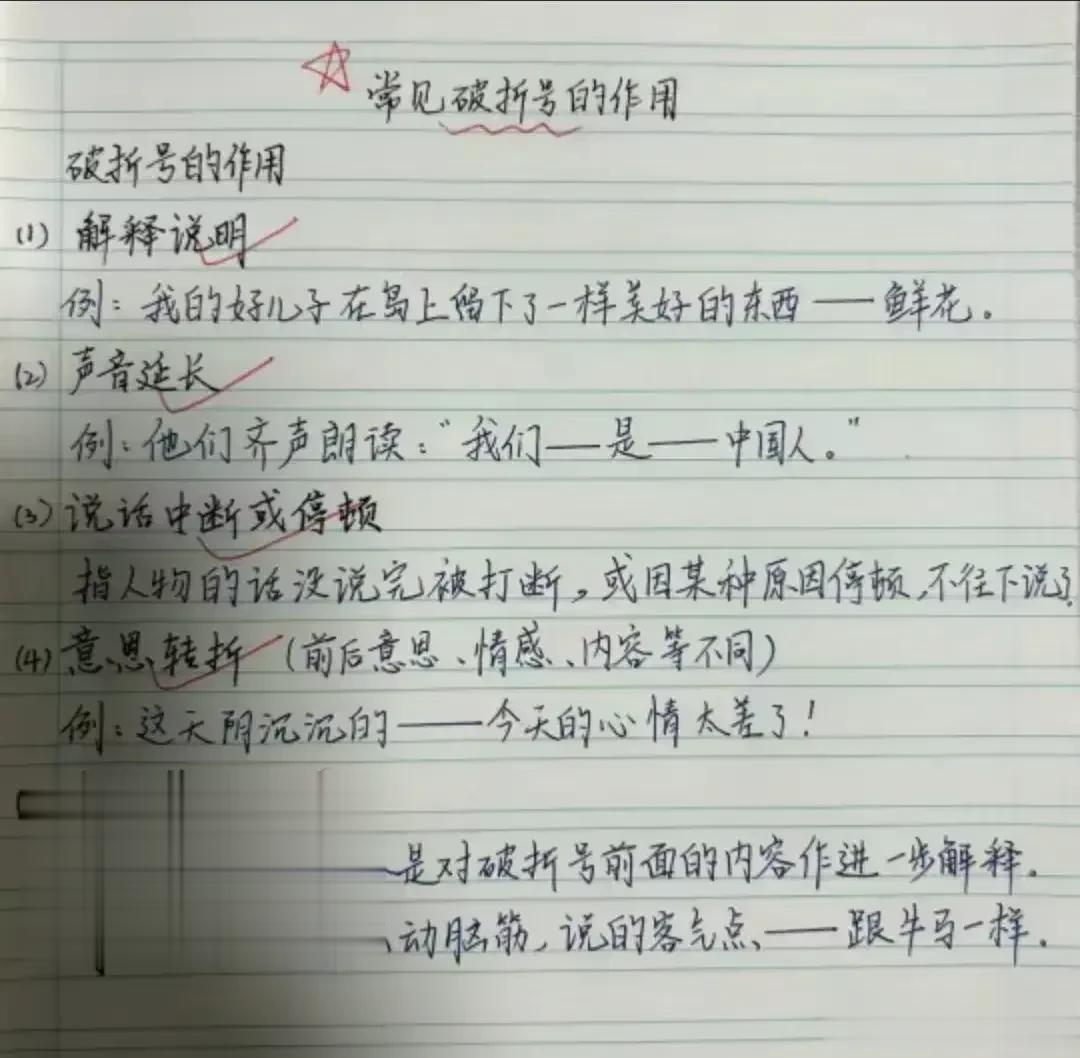 常见破折号的作用
破折号的作用
(1) 解释说明
例：我的好儿子在岛上留下了一样美好的东西——鲜花。
(2) 声音延长
例：他们齐声朗读：“我们——是——中国人。”
(3) 说话中断或停顿
指人物的话没说完被打断，或因某种原因停顿，不往下说了
(4) 意思转折（前后意思、情感、内容等不同）
例：这天阴沉沉的——今天的心情太差了！
是对破折号前面的内容作进一步解释。
动脑筋，说的客气点、——跟牛马一样．